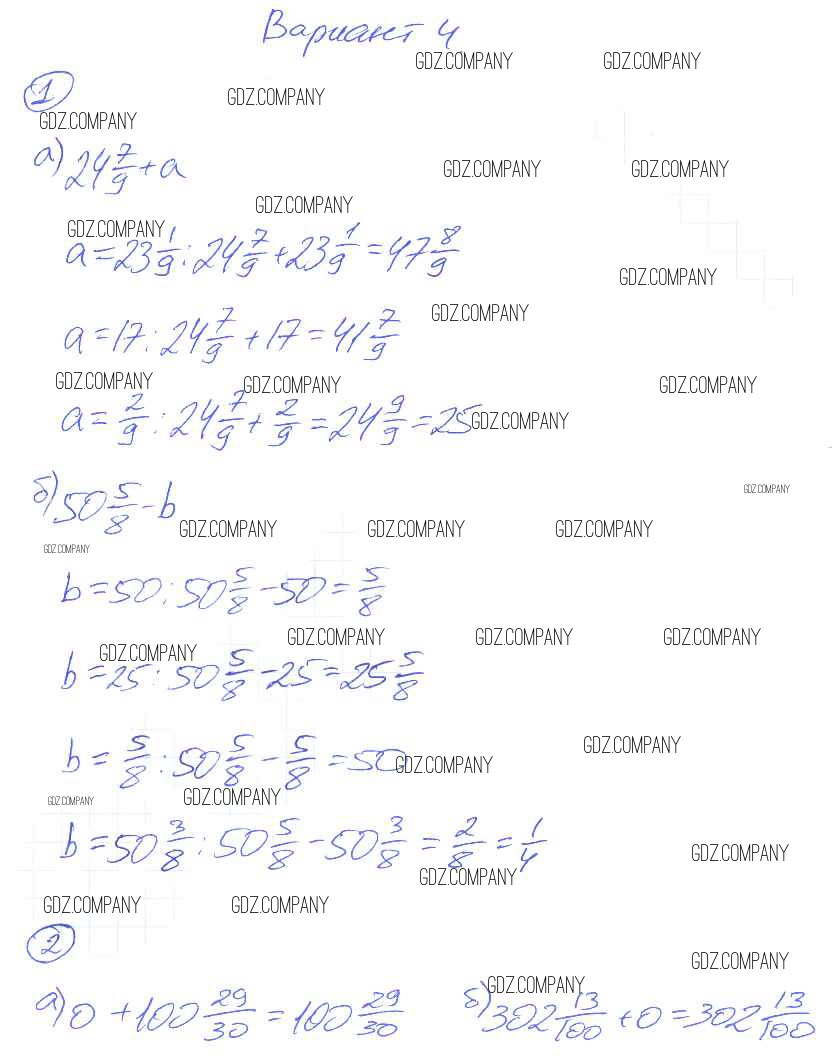 Вариант 4
GDZ.COMPANY GDZ.COMPANY
GDZ.COMPANY
1
GDZ.COMPANY
а) 24 7/9 + a
GDZ.COMPANY GDZ.COMPANY
GDZ.COMPANY
GDZ.COMPANY
a = 23 1/9 : 24 7/9 + 23 1/9 = 47 8/9
GDZ.COMPANY
GDZ.COMPANY
a = 17 : 24 7/9 + 17 = 41 7/9
GDZ.COMPANY GDZ.COMPANY GDZ.COMPANY
a = 2/9 : 24 7/9 + 2/9 = 24 9/9 = 25
GDZ.COMPANY
GDZ.COMPANY
б) 50 5/8 - b
GDZ.COMPANY GDZ.COMPANY GDZ.COMPANY
GDZ.COMPANY
b = 50 : 50 5/8 - 50 = 5/8
GDZ.COMPANY GDZ.COMPANY GDZ.COMPANY GDZ.COMPANY
b = 25 : 50 5/8 - 25 = 25 5/8
GDZ.COMPANY
b = 5/8 : 50 5/8 - 5/8 = 50
GDZ.COMPANY
GDZ.COMPANY GDZ.COMPANY
b = 50 3/8 : 50 5/8 - 50 3/8 = 2/8 = 1/4
GDZ.COMPANY
GDZ.COMPANY
GDZ.COMPANY GDZ.COMPANY
2
GDZ.COMPANY
GDZ.COMPANY
а) 0 + 100 29/30 = 100 29/30 б) 302 13/100 + 0 = 302 13/100